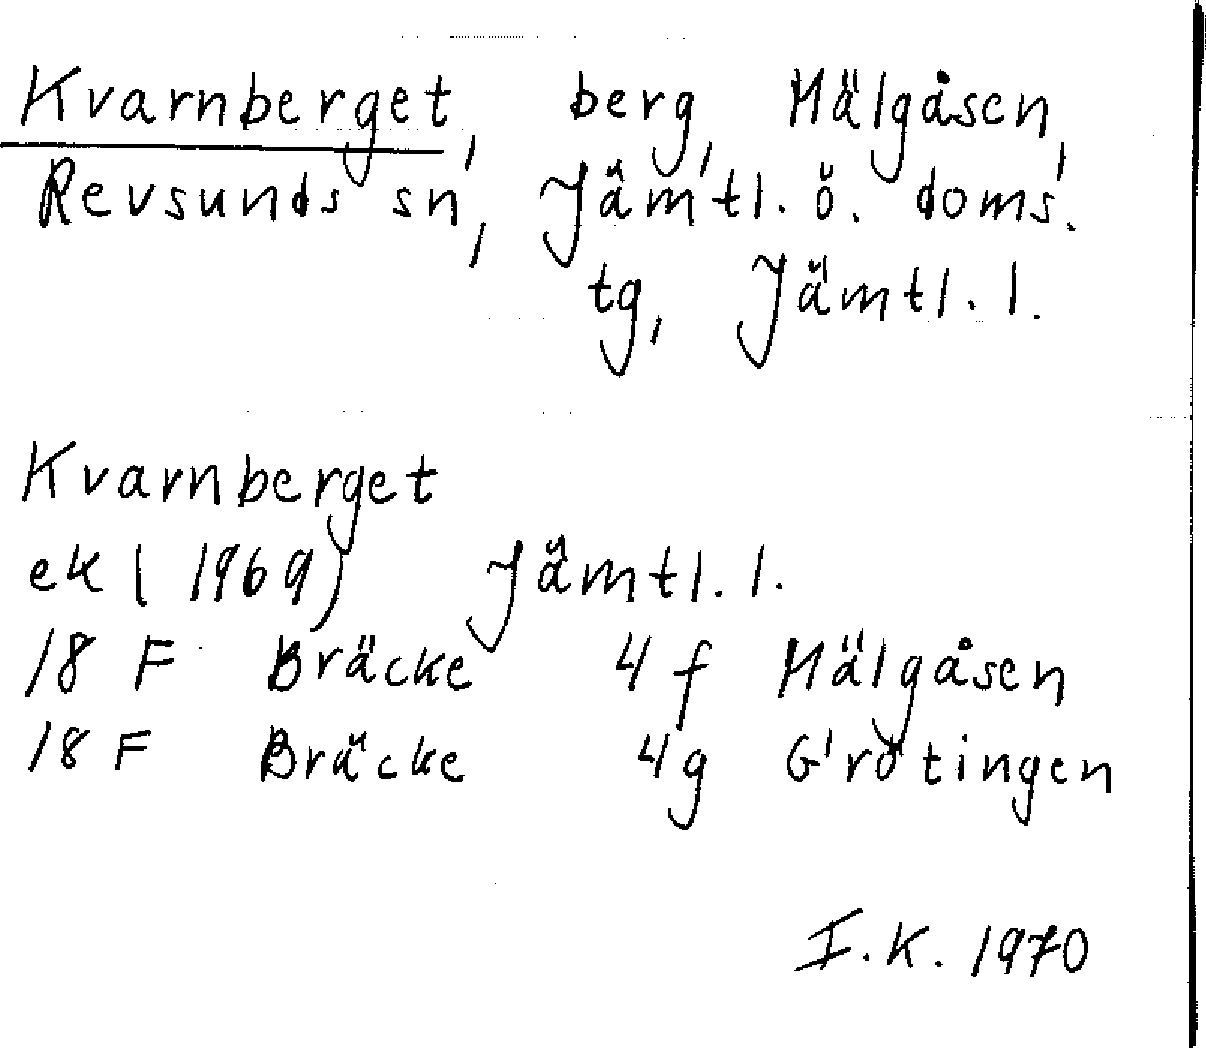 Kvarnberget, berg, Mälgåsen,
Revsunds sn, Jämtl. ö. doms.
tg, Jämtl. l.
Kvarnberget
ek (1969) Jämtl. l.
18 F Bräcke 4 f Mälgåsen
18 F Bräcke 4g Grötingen
I.K. 1970